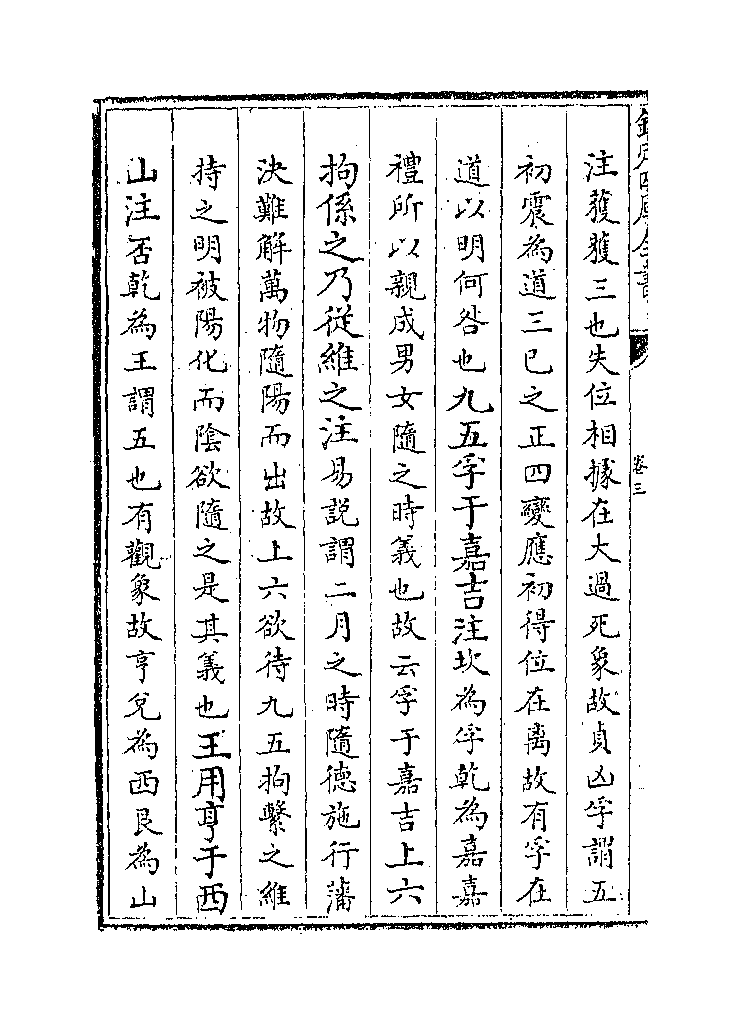 欽定四庫全書
卷三
注獲獲三也失位相據在大過死象故貞凶孚謂五
初震為道三已之正四變應初得位在离故有孚在
道以明何咎也九五孚于嘉吉注坎為孚乾為嘉嘉
禮所以親成男女隨之時義也故云孚于嘉吉上六
拘係之乃從維之注易説謂二月之時隨德施行藩
決難解萬物隨陽而出故上六欲待九五拘繫之維
持之明被陽化而陰欲隨之是其義也王用亨于西
山注否乾為王謂五也有觀象故亨兌為西艮為山